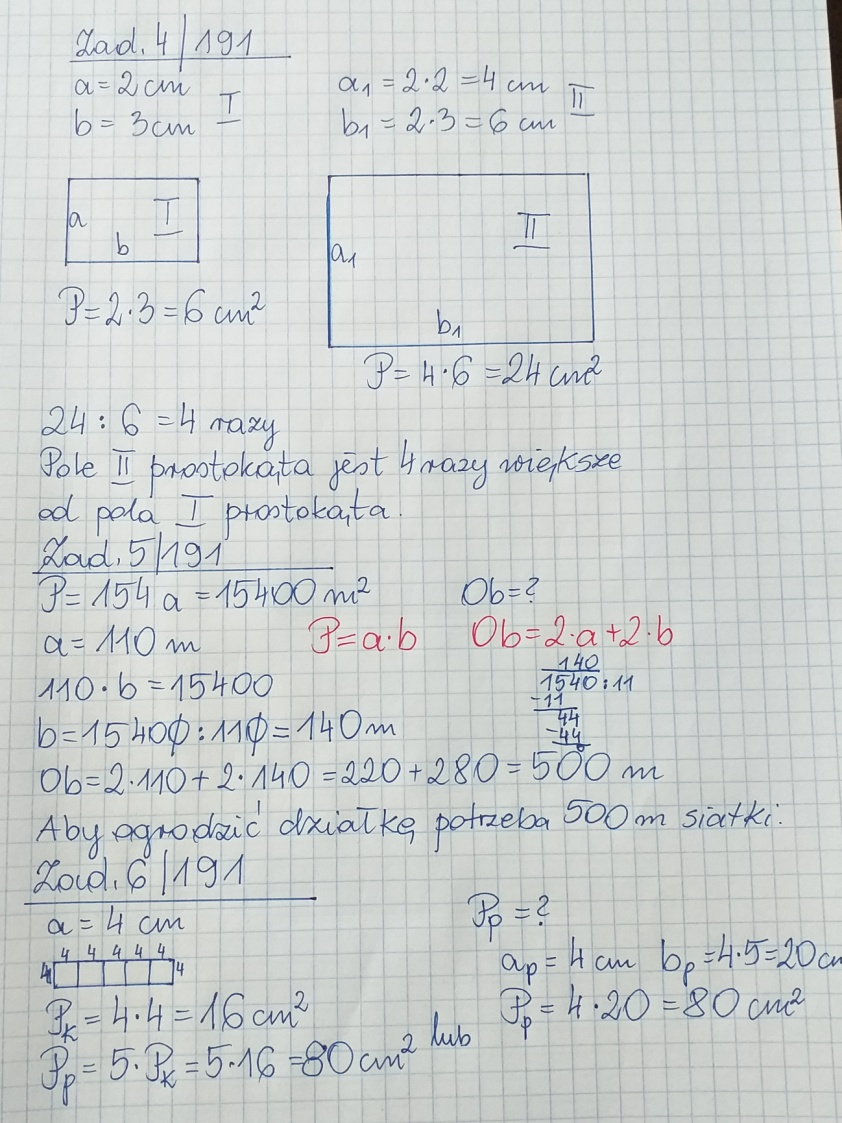 Zad. 4/191
a = 2 cm
b = 3 cm
I
a₁ = 2·2 = 4 cm
b₁ = 2·3 = 6 cm
II
a
I
b
a₁
II
b₁
P = 2·3 = 6 cm²
P = 4·6 = 24 cm²
24 : 6 = 4 razy
Pole II prostokąta jest 4 razy większe
od pola I prostokąta.
Zad. 5/191
P = 154 a = 15400 m² Ob = ?
a = 110 m P = a·b Ob = 2·a + 2·b
110·b = 15400
140
1540 : 11
-11
44
-44
0
b = 15400 : 110 = 140 m
Ob = 2·110 + 2·140 = 220 + 280 = 500 m
Aby ogrodzić działkę potrzeba 500 m siatki.
Zad. 6/191
a = 4 cm
4 4 4 4 4
4 4
Pk = 4·4 = 16 cm²
Pp = 5·Pk = 5·16 = 80 cm² lub
Pp = ?
ap = 4 cm bp = 4·5 = 20 cm
Pp = 4·20 = 80 cm²